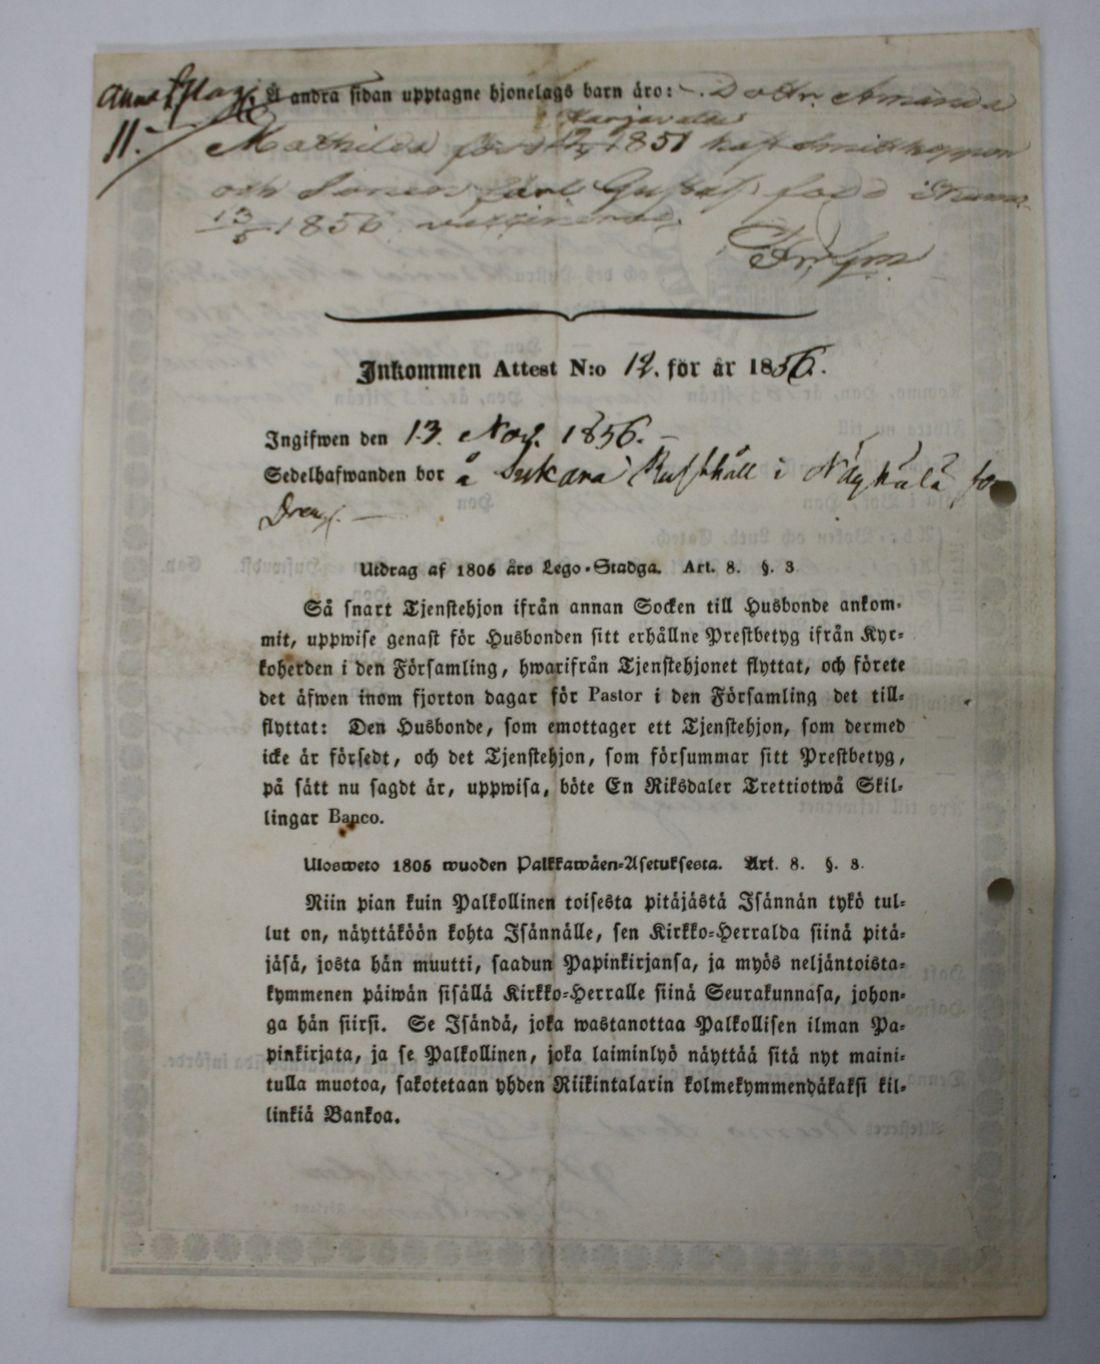 Å andra sidan upptagne hjonelags barn äro: Dottr. Amanda
Mathilda född 1851 haft
och Sonen Carl Gustaf född i
13/5 1856
11.
Inkommen Attest N:o 12. för år 1856.
Ingifwen den 13. Nov. 1856.
Sedelhafwanden bor å Sukara Rusthåll i Näykälä so
Dreng.
Utdrag af 1805 års Lego-Stadga. Art. 8. §. 3
Så snart Tjenstehjon ifrån annan Socken till Husbonde ankom-
mit, uppwise genast för Husbonden sitt erhållne Prestbetyg ifrån Kyr-
koherden i den Församling, hwarifrån Tjenstehjonet flyttat, och förete
det äfwen inom fjorton dagar för Pastor i den Församling det till-
flyttat: Den Husbonde, som emottager ett Tjenstehjon, som dermed
icke är försedt, och det Tjenstehjon, som försummar sitt Prestbetyg,
på sätt nu sagdt är, uppwisa, böte En Riksdaler Trettiotwå Skil-
lingar Banco.
Ulosweto 1805 wuoden Palkkawäen-Asetuksesta. Art. 8. §. 3.
Niin pian kuin Palkollinen toisesta pitäjästä Isännän tykö tul-
lut on, näyttäköön kohta Isännälle, sen Kirkko-Herralda siinä pitä-
jäsä, josta hän muutti, saadun Papinkirjansa, ja myös neljäntoista-
kymmenen päiwän sisällä Kirkko-Herralle siinä Seurakunnasa, johon-
ga hän siirsi. Se Isändä, joka wastanottaa Palkollisen ilman Pa-
pinkirjata, ja se Palkollinen, joka laiminlyö näyttää sitä nyt maini-
tulla muotoa, sakotetaan yhden Riikintalarin kolmekymmendäkaksi kil-
linkiä Bankoa.